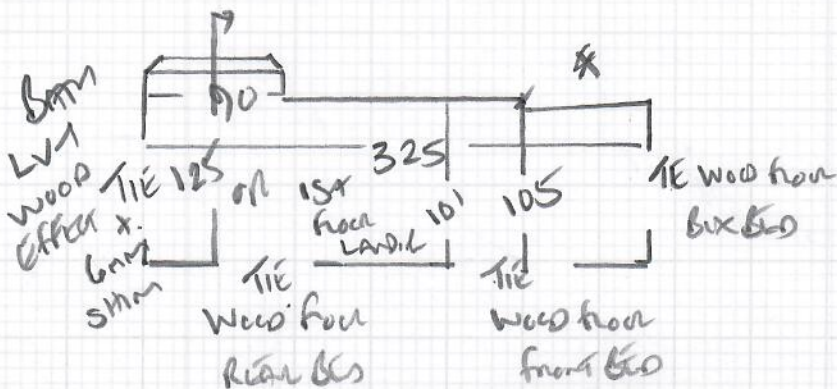 90
BATH
LVT
WOOD
EFFECT X.
6mm
SHIM
TIE 125 OR
1ST
FLOOR
LANDIG
325
101
105
TIE WOOD FLOOR
BOX BED
TIE
WOOD FLOOR
REAR BED
TIE
WOOD FLOOR
FRONT BED